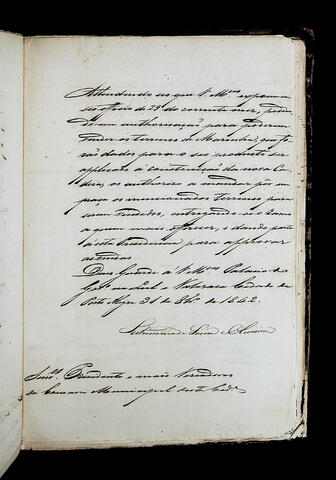 Attendendo ao que V. M.ces expoem em
seo officio de 29 do corrente mez, pedin
do-me authorisação para poderem
vender os terrenos de Marinha, que fo
rão dados para o seo producto ser
applicado á construcção da nova Ca
dea, os authoriso a mandar pôr em
praça os mencionados terrenos para
serem vendidos, entregando-se o ramo
a quem mais offerecer, e dando parte
a esta Presidencia para approvar
as vendas
Deos Guarde a V. M.ces Palacio do
Gov.º na Leal e Valerosa Cidade de
Porto Alegre 31 de 8br.º de 1842.
Saturnino de Souza e Oliveira
Snr.es Presidente e mais Vereadores
da Camara Municipal desta Cid.e